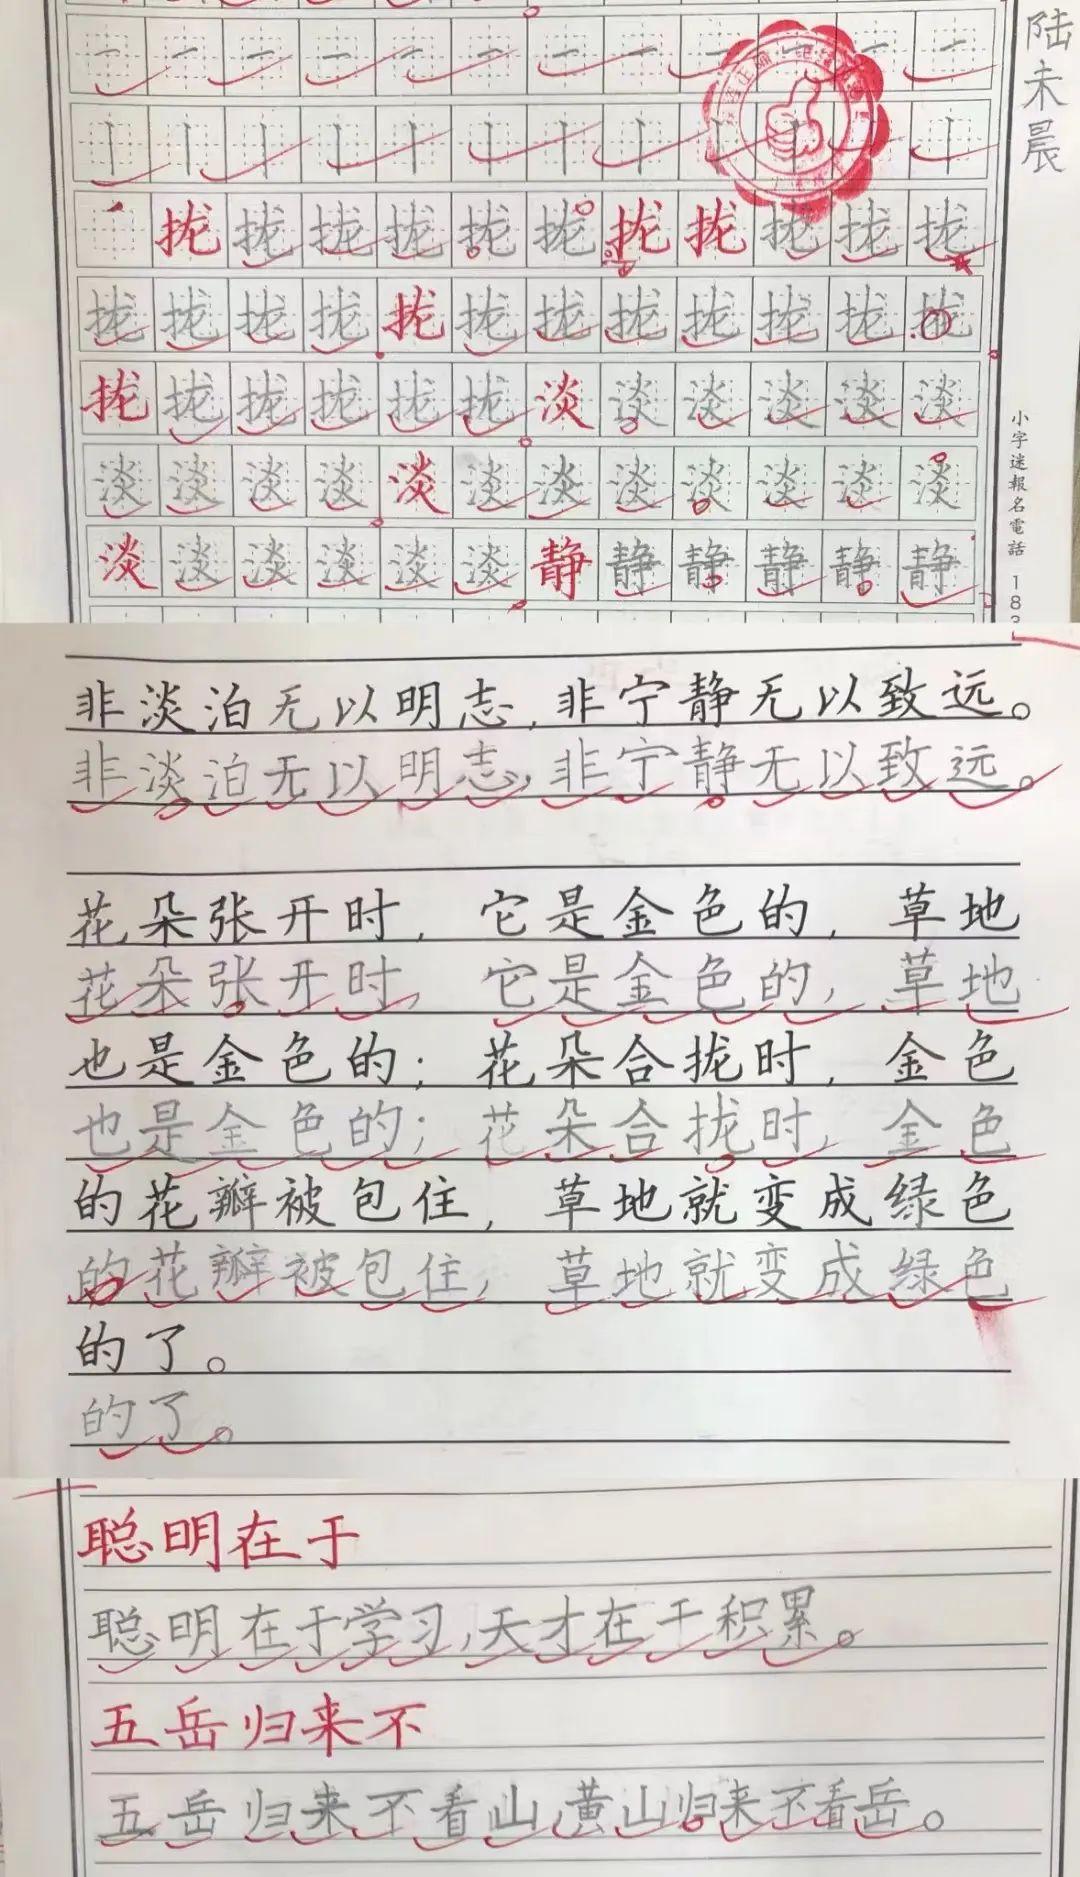 陆未晨
一一一一一一一一一一一一
丨丨丨丨丨丨丨丨丨丨丨丨
拢拢拢拢拢拢拢拢拢拢拢
拢拢拢拢拢拢拢拢拢拢拢拢
拢拢拢拢拢拢淡淡淡淡淡淡
淡淡淡淡淡淡淡淡淡淡淡淡
淡淡淡淡淡淡静静静静静静
小字迷報名電話 183
非淡泊无以明志,非宁静无以致远。
非淡泊无以明志,非宁静无以致远。
花朵张开时,它是金色的,草地
花朵张开时,它是金色的,草地
也是金色的;花朵合拢时,金色
也是金色的;花朵合拢时,金色
的花瓣被包住,草地就变成绿色
的花瓣被包住,草地就变成绿色
的了。
的了。
聪明在于
聪明在于学习,天才在于积累。
五岳归来不
五岳归来不看山,黄山归来不看岳。